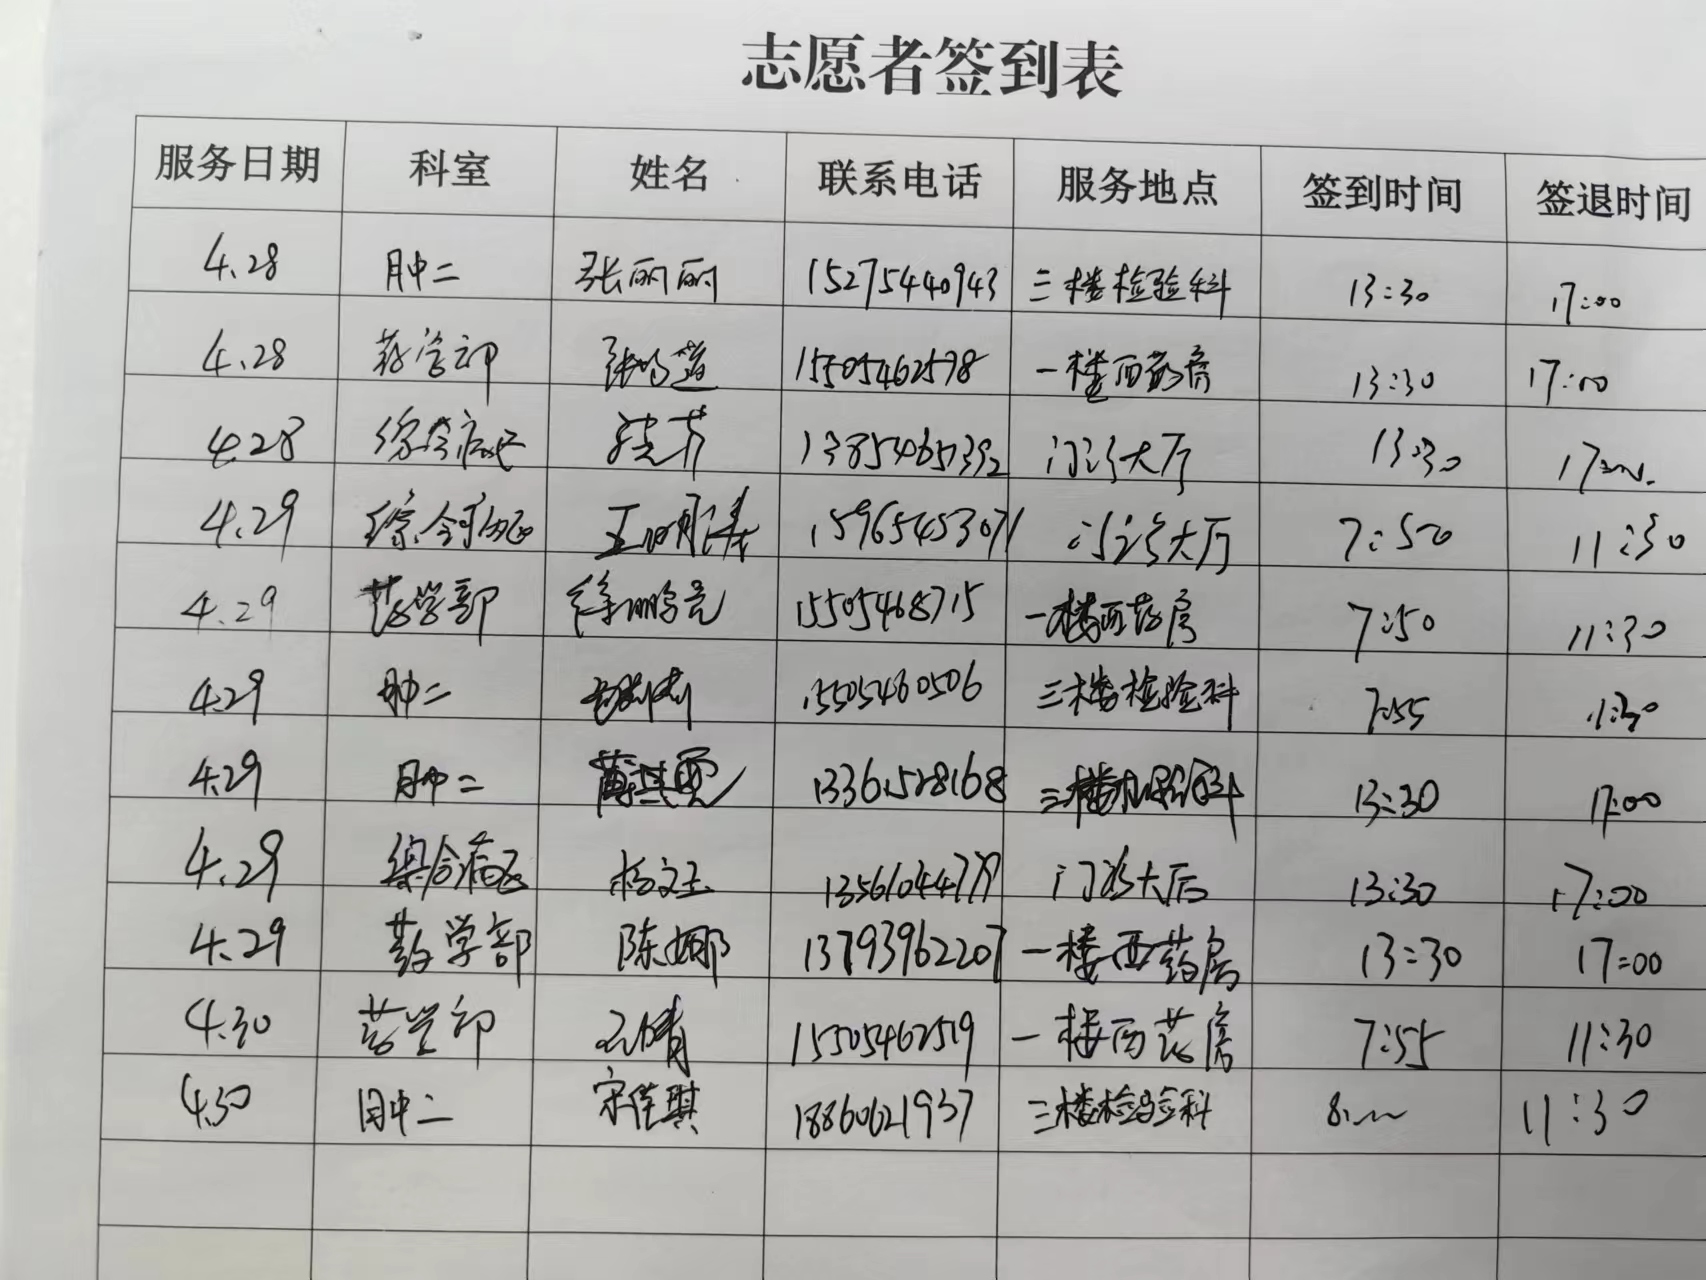 志愿者签到表
服务日期 科室 姓名 联系电话 服务地点 签到时间 签退时间
4.28 肿二 张丽丽 15275440943 三楼检验科 13:30 17:00
4.28 药学部 15505462578 一楼西药房 13:30 17:00
4.28 综合病区 13854651392 门诊大厅 13:30 17:00
4.29 综合病区 15965453071 门诊大厅 7:50 11:30
4.29 药学部 徐鹏亮 15505468715 一楼西药房 7:50 11:30
4.29 肿二 15505460506 三楼检验科 7:55 11:30
4.29 肿二 13361528168 三楼检验科 13:30 17:00
4.29 综合病区 杨文玉 门诊大厅 13:30 17:00
4.29 药学部 陈娜 13793962207 一楼西药房 13:30 17:00
4.30 药学部 15505462519 一楼西药房 7:55 11:30
4.30 肿二 宋佳琪 18860621937 三楼检验科 11:30